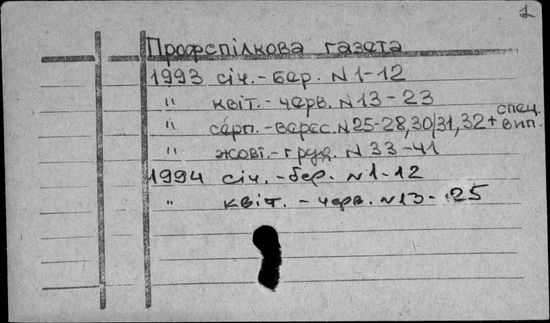 1
Профспілкова газета
1993 січ.-бер. N1-12
" квіт.-черв. N13-23
" серп.-верес. N25-28,30/31,32+ спец. вип.
" жовт.-груд. N33-41
1994 січ.-бер. N1-12
" квіт.-черв. N13-25